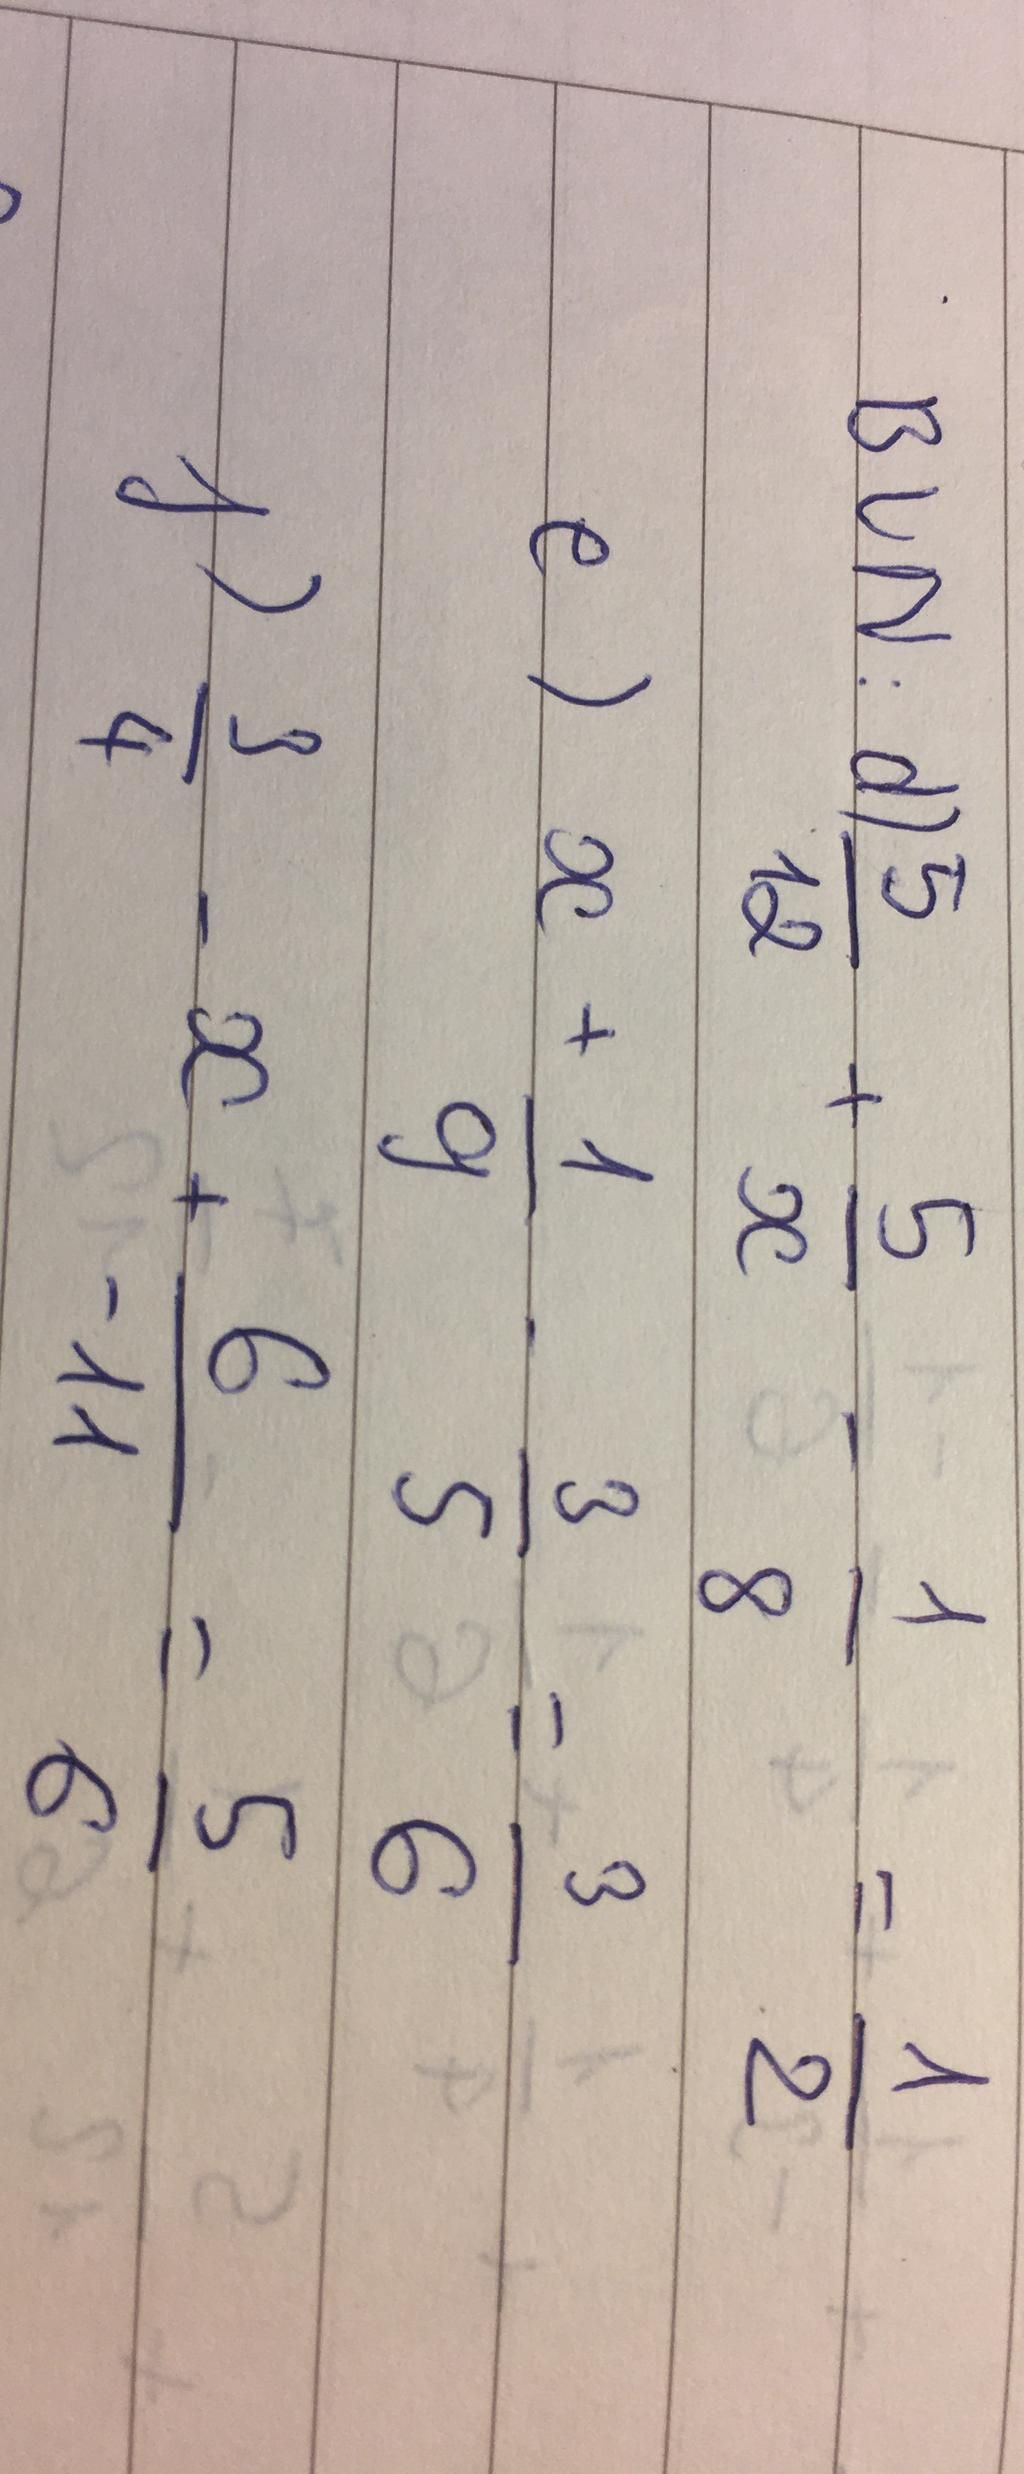 BVN: d) 5/12 + 5/x - 1/8 = 1/2
e) x + 1/9 - 3/5 = 3/6
f) 3/4 - x + 6/-11 = 5/6